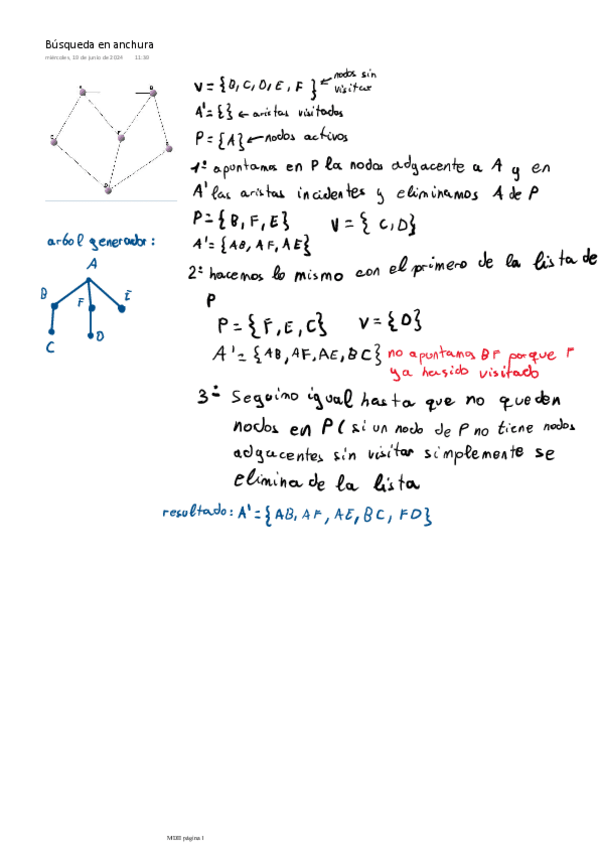 Búsqueda en anchura
miércoles, 10 de junio de 2024 11:30
V = {B, C, D, E, F } ← nodos sin visitar
A' = {} ← aristas visitadas
P = {A} ← nodos activos
1º apuntamos en P la nodos adyacente a A y en
A' las aristas incidentes y eliminamos A de P
P = {B, F, E} V = { C, D}
A' = {AB, AF, AE}
arbol generador:
A
B F E
C D
2º hacemos lo mismo con el primero de la lista de
P
P = {F, E, C} V = {D}
A' = {AB, AF, AE, BC} no apuntamos BF porque F
ya ha sido visitado
3º Seguimo igual hasta que no queden
nodos en P ( si un nodo de P no tiene nodos
adyacentes sin visitar simplemente se
elimina de la lista
resultado: A' = {AB, AF, AE, BC, FD}